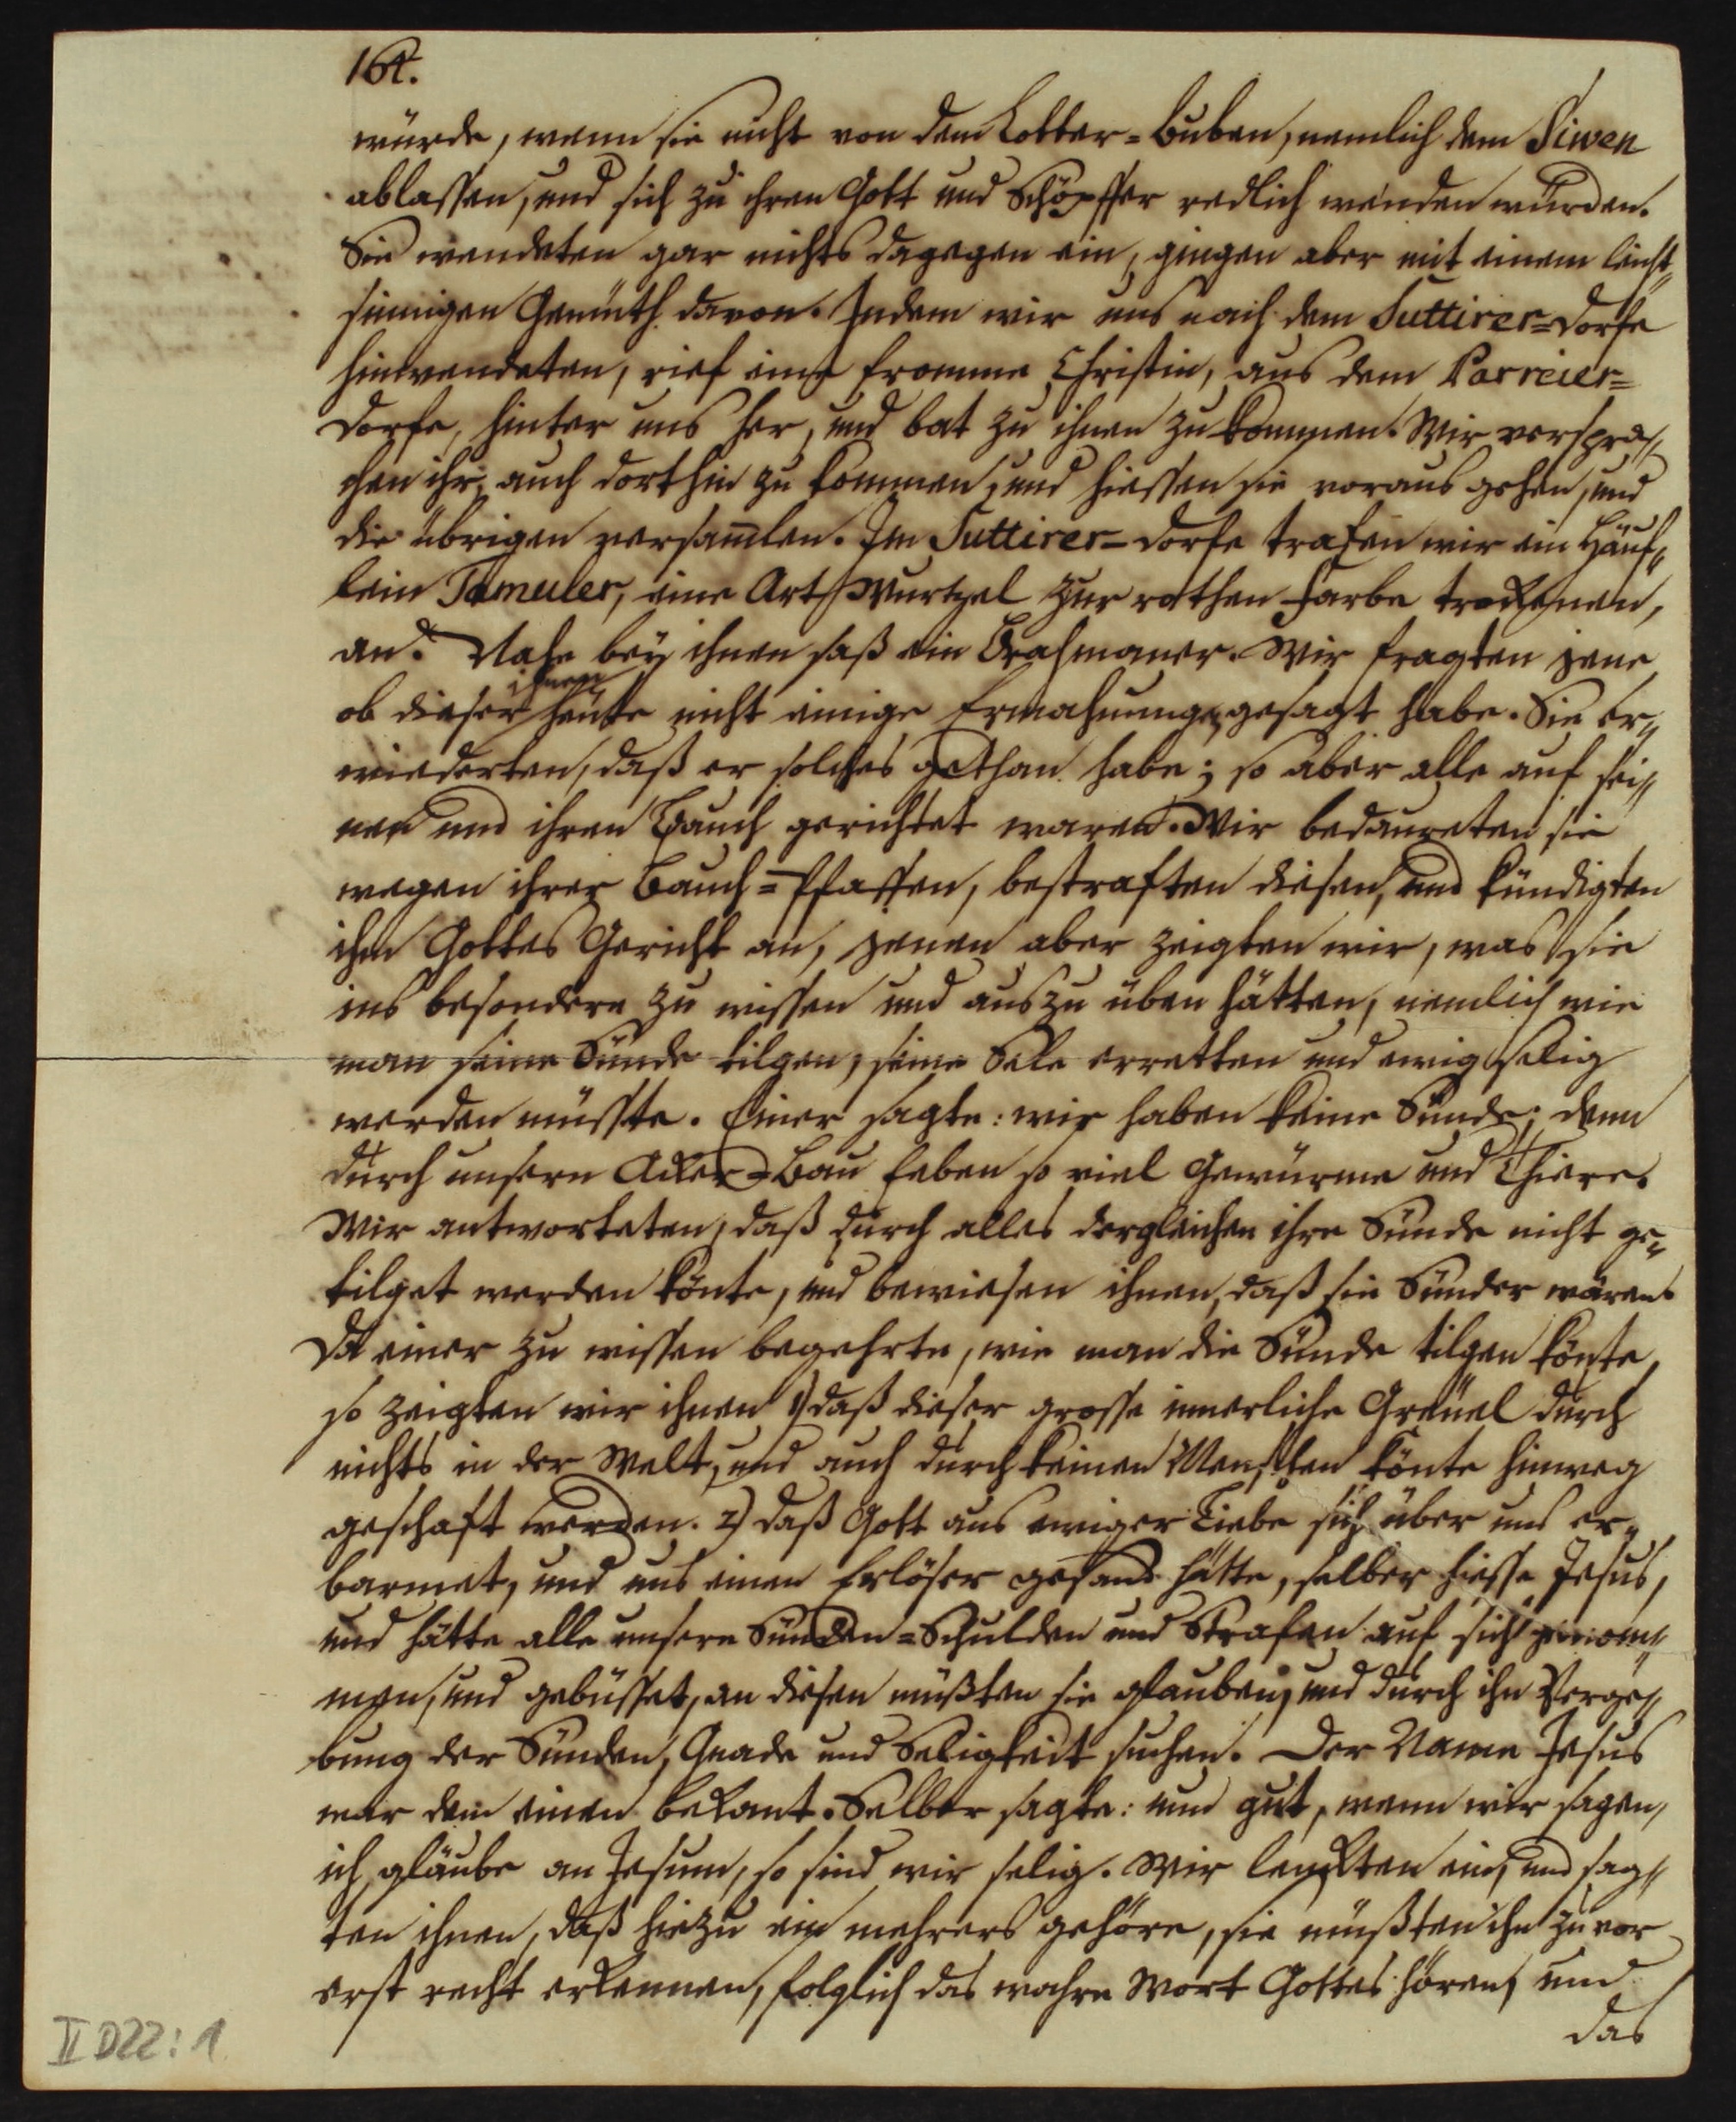 164.
würde, wenn sie nicht von dem Lotter=buben, nemlich dem Siwen
ablassen, und sich zu ihren Gott und Schöpffer redlich wenden würden.
Sie wendeten gar nichts dagegen ein, gingen aber mit einem leicht„
sinnigen Gemüth davon. Indem wir uns nach dem Suttirer=dorfe
hinwendeten, rief eine fromme Christin, aus dem Parreier=
dorfe, hinter uns her, und bat zu ihnen zu kommen. Wir verspra„
chen ihr, auch dorthin zu kommen, und hiessen sie voraus gehen, und
die übrigen versam̅len. Im Suttirer=dorfe trafen wir ein Häuf„
lein Tamuler, eine Art Wurtzel zur rothen Farbe trockenen,
an. Nahe bey ihnen saß ein Brahmaner. Wir fragten jene
ihnen
ob dieser heute nicht einige Ermahnung gesagt habe. Sie er„
wiederten, daß er solches gethan habe; so aber alle auf sei„
nen und ihren Bauch gerichtet waren. Wir bedaureten sie
wegen ihrer Bauch=Pfaffen, bestraften diesen, und kündigten
ihm Gottes Gericht an, jenen aber zeigten wir, was sie
ins besondere zu wissen und auszu üben hätten, nemlich wie
man seine Sünde tilgen, seine Sele erretten und ewig selig
werden müsste. Einer sagte: wir haben keine Sünde; denn
durch unsern Acker=Bau leben so viel Gewürme und Thiere.
Wir antworteten, daß durch alles dergleichen ihre Sünde nicht ge„
tilget werden könte, und bewiesen ihnen, daß sie Sünder wären.
Da einer zu wissen begehrte, wie man die Sünde tilgen könte,
so zeigten wir ihnen 1) daß dieser grosse innerliche Greuel durch
nichts in der Welt, und auch durch keinen Menschen könte hinweg
geschaft werden. 2) daß Gott aus ewiger Liebe sich über uns er„
barmet, und uns einen Erlöser gesand hätte, selber hiesse Jesus,
und hätte alle unsere Sünden=Schulden und Strafen auf sich genom„
men, und gebüsset, an diesen müßten sie glauben, und durch ihn Verge„
bung der Sünden, Gnade und Seligkeit suchen. Der Name Jesus
war dem einen bekant. Selber sagte: nun gut, wenn wir sagen,
ich gläube an Jesum, so sind wir selig. Wir lenckten ein, und sag„
ten ihnen, daß hiezu ein mehrers gehöre, sie müßten ihn zu vor
erst recht erkennen, folglich das wahre Wort Gottes hören, und
das
II D22: 1